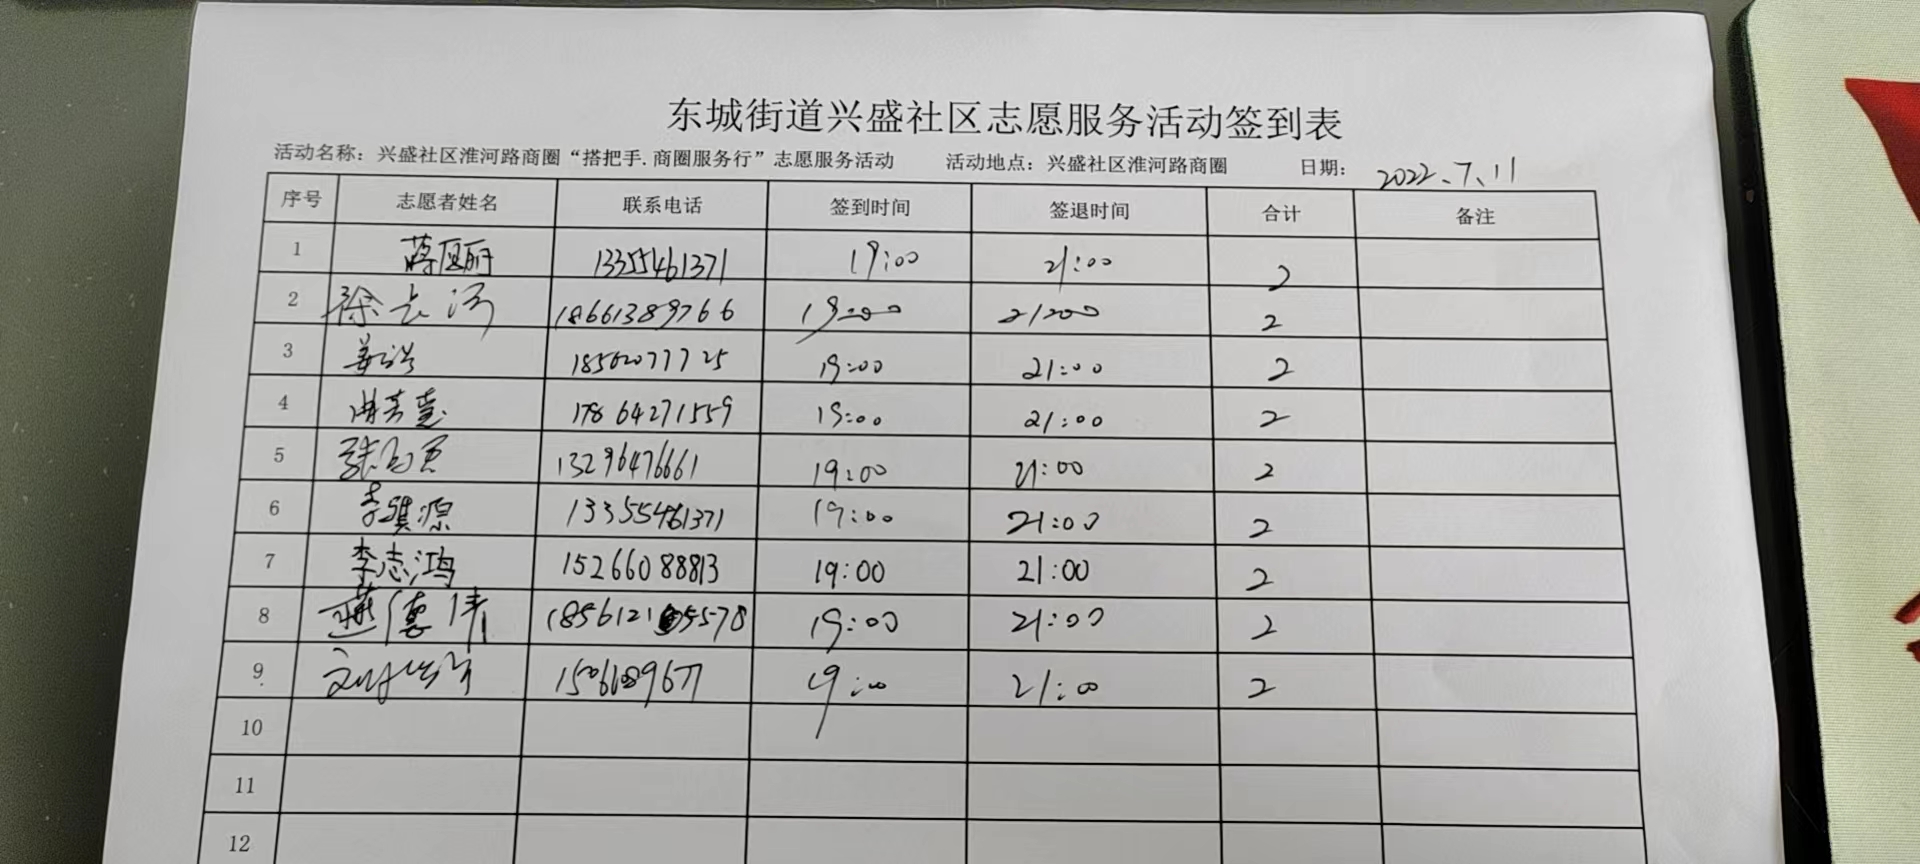 东城街道兴盛社区志愿服务活动签到表
活动名称：兴盛社区淮河路商圈“搭把手.商圈服务行”志愿服务活动 活动地点：兴盛社区淮河路商圈 日期： 2022.7.11
序号 志愿者姓名 联系电话 签到时间 签退时间 合计 备注
1 13355461371 19:00 21:00 2
2 徐长河 18661389766 19:00 21:00 2
3 姜浩 19:00 21:00 2
4 曲芳慧 17864271559 19:00 21:00 2
5 13296476661 19:00 21:00 2
6 李骐源 13355461371 19:00 21:00 2
7 李志鸿 15266088813 19:00 21:00 2
8 燕德伟 19:00 21:00 2
9 19:00 21:00 2
10
11
12